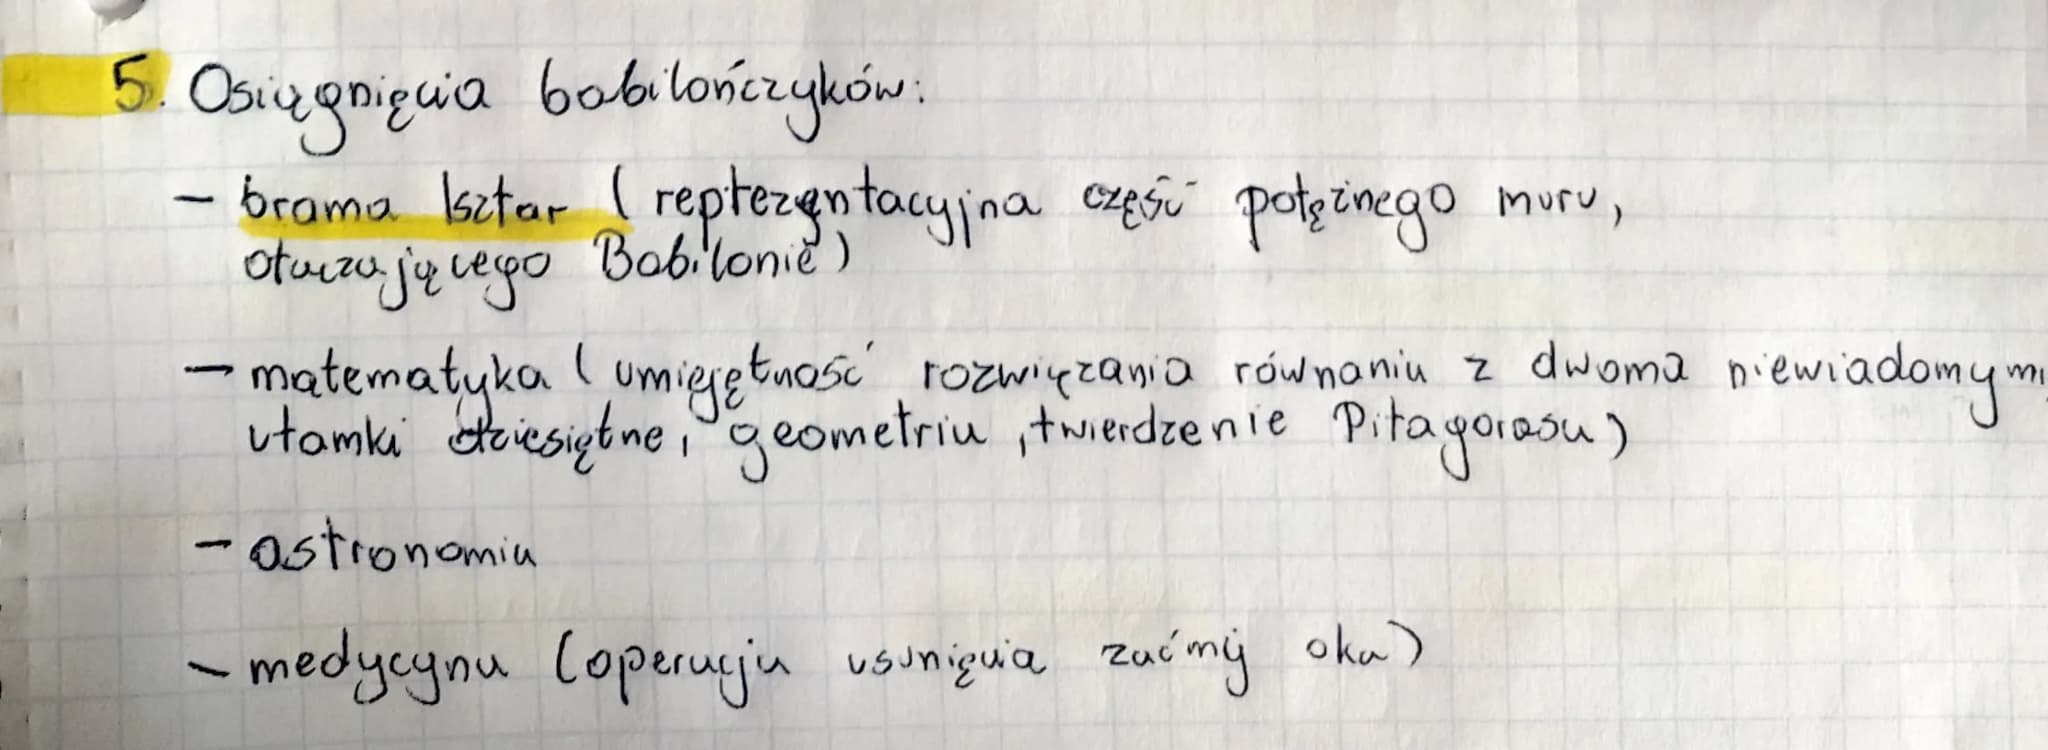 5. Osiągnięcia babilończyków:
- brama Isztar (reprezentacyjna część potężnego muru,
otaczającego Babilonię)
- matematyka (umiejętność rozwiązania równania z dwoma niewiadomymi,
ułamki dziesiętne, geometria, twierdzenie Pitagorasa)
- astronomia
- medycyna (operacja usunięcia zaćmy oka)